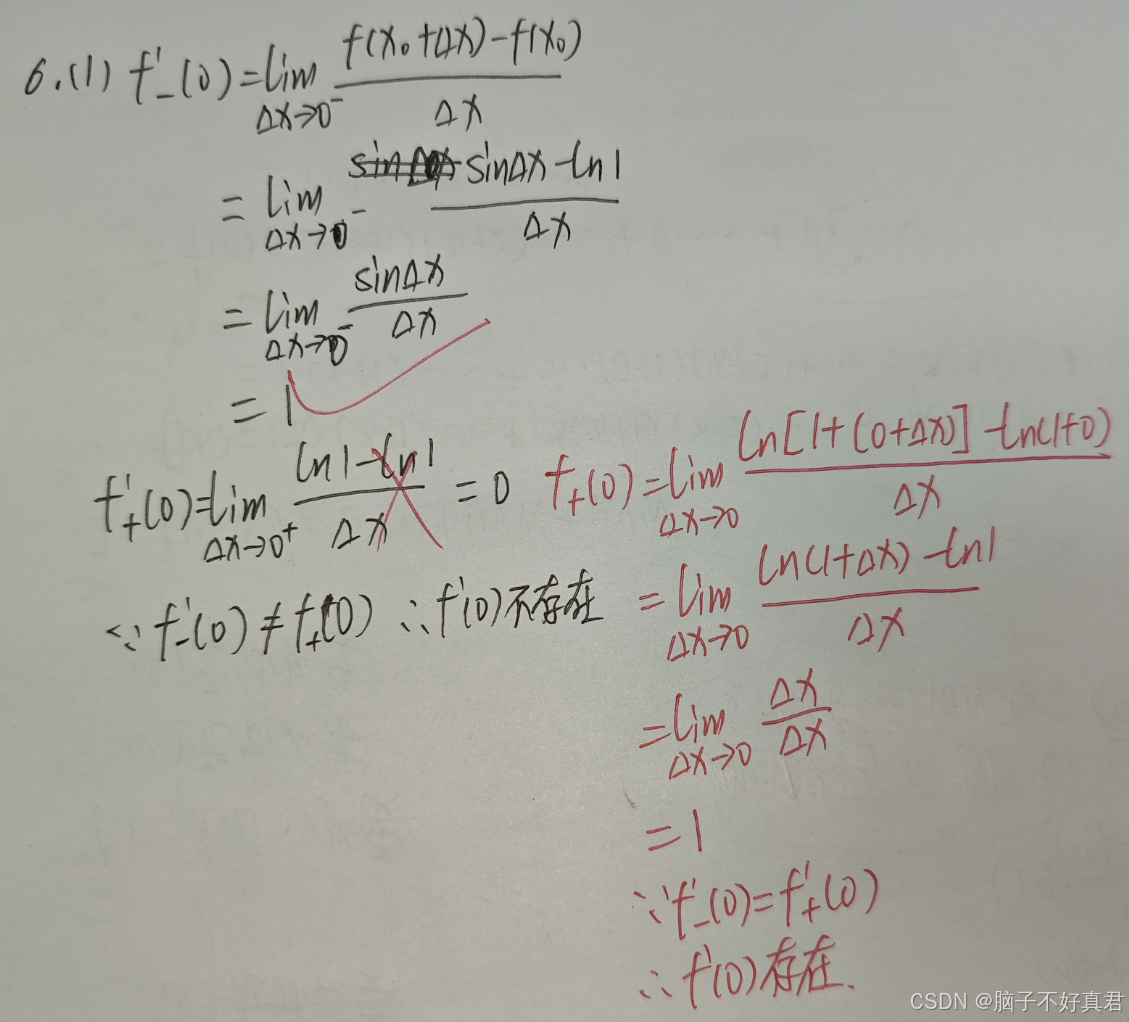 6.(1) f'₋(0)=lim_{Δx→0⁻} \frac{f(x₀+Δx)-f(x₀)}{Δx}
= lim_{Δx→0⁻} \frac{sinΔx-ln1}{Δx}
= lim_{Δx→0⁻} \frac{sinΔx}{Δx}
= 1
f'₊(0)=lim_{Δx→0⁺} \frac{ln1-ln1}{Δx} = 0
∵ f'₋(0) ≠ f'₊(0) ∴ f'(0)不存在
f₊(0)=lim_{Δx→0} \frac{ln[1+(0+Δx)]-ln(1+0)}{Δx}
=lim_{Δx→0} \frac{ln(1+Δx)-ln1}{Δx}
=lim_{Δx→0} \frac{Δx}{Δx}
=1
∵f'₋(0)=f'₊(0)
∴f'(0)存在.
CSDN @脑子不好真君